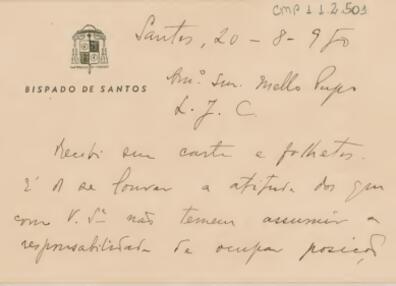 CMP 1 1 2.501
Santos, 20-8-950
BISPADO DE SANTOS
Am.º Snr. Mello Pupo
L. J. C.
Recebi sua carta e folhetos.
É d se louvar a atitude dos que
com V. Sª não temem assumir a
responsabilidade de ocupar posição